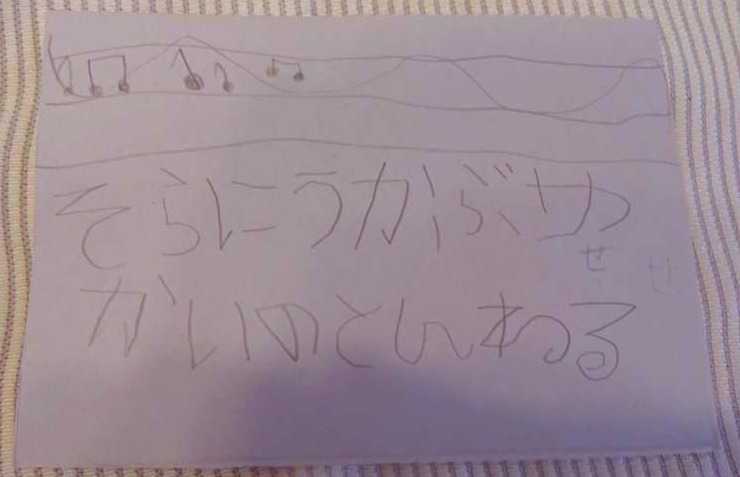 そらにうかぶせ
せ せ
かいのとんねる